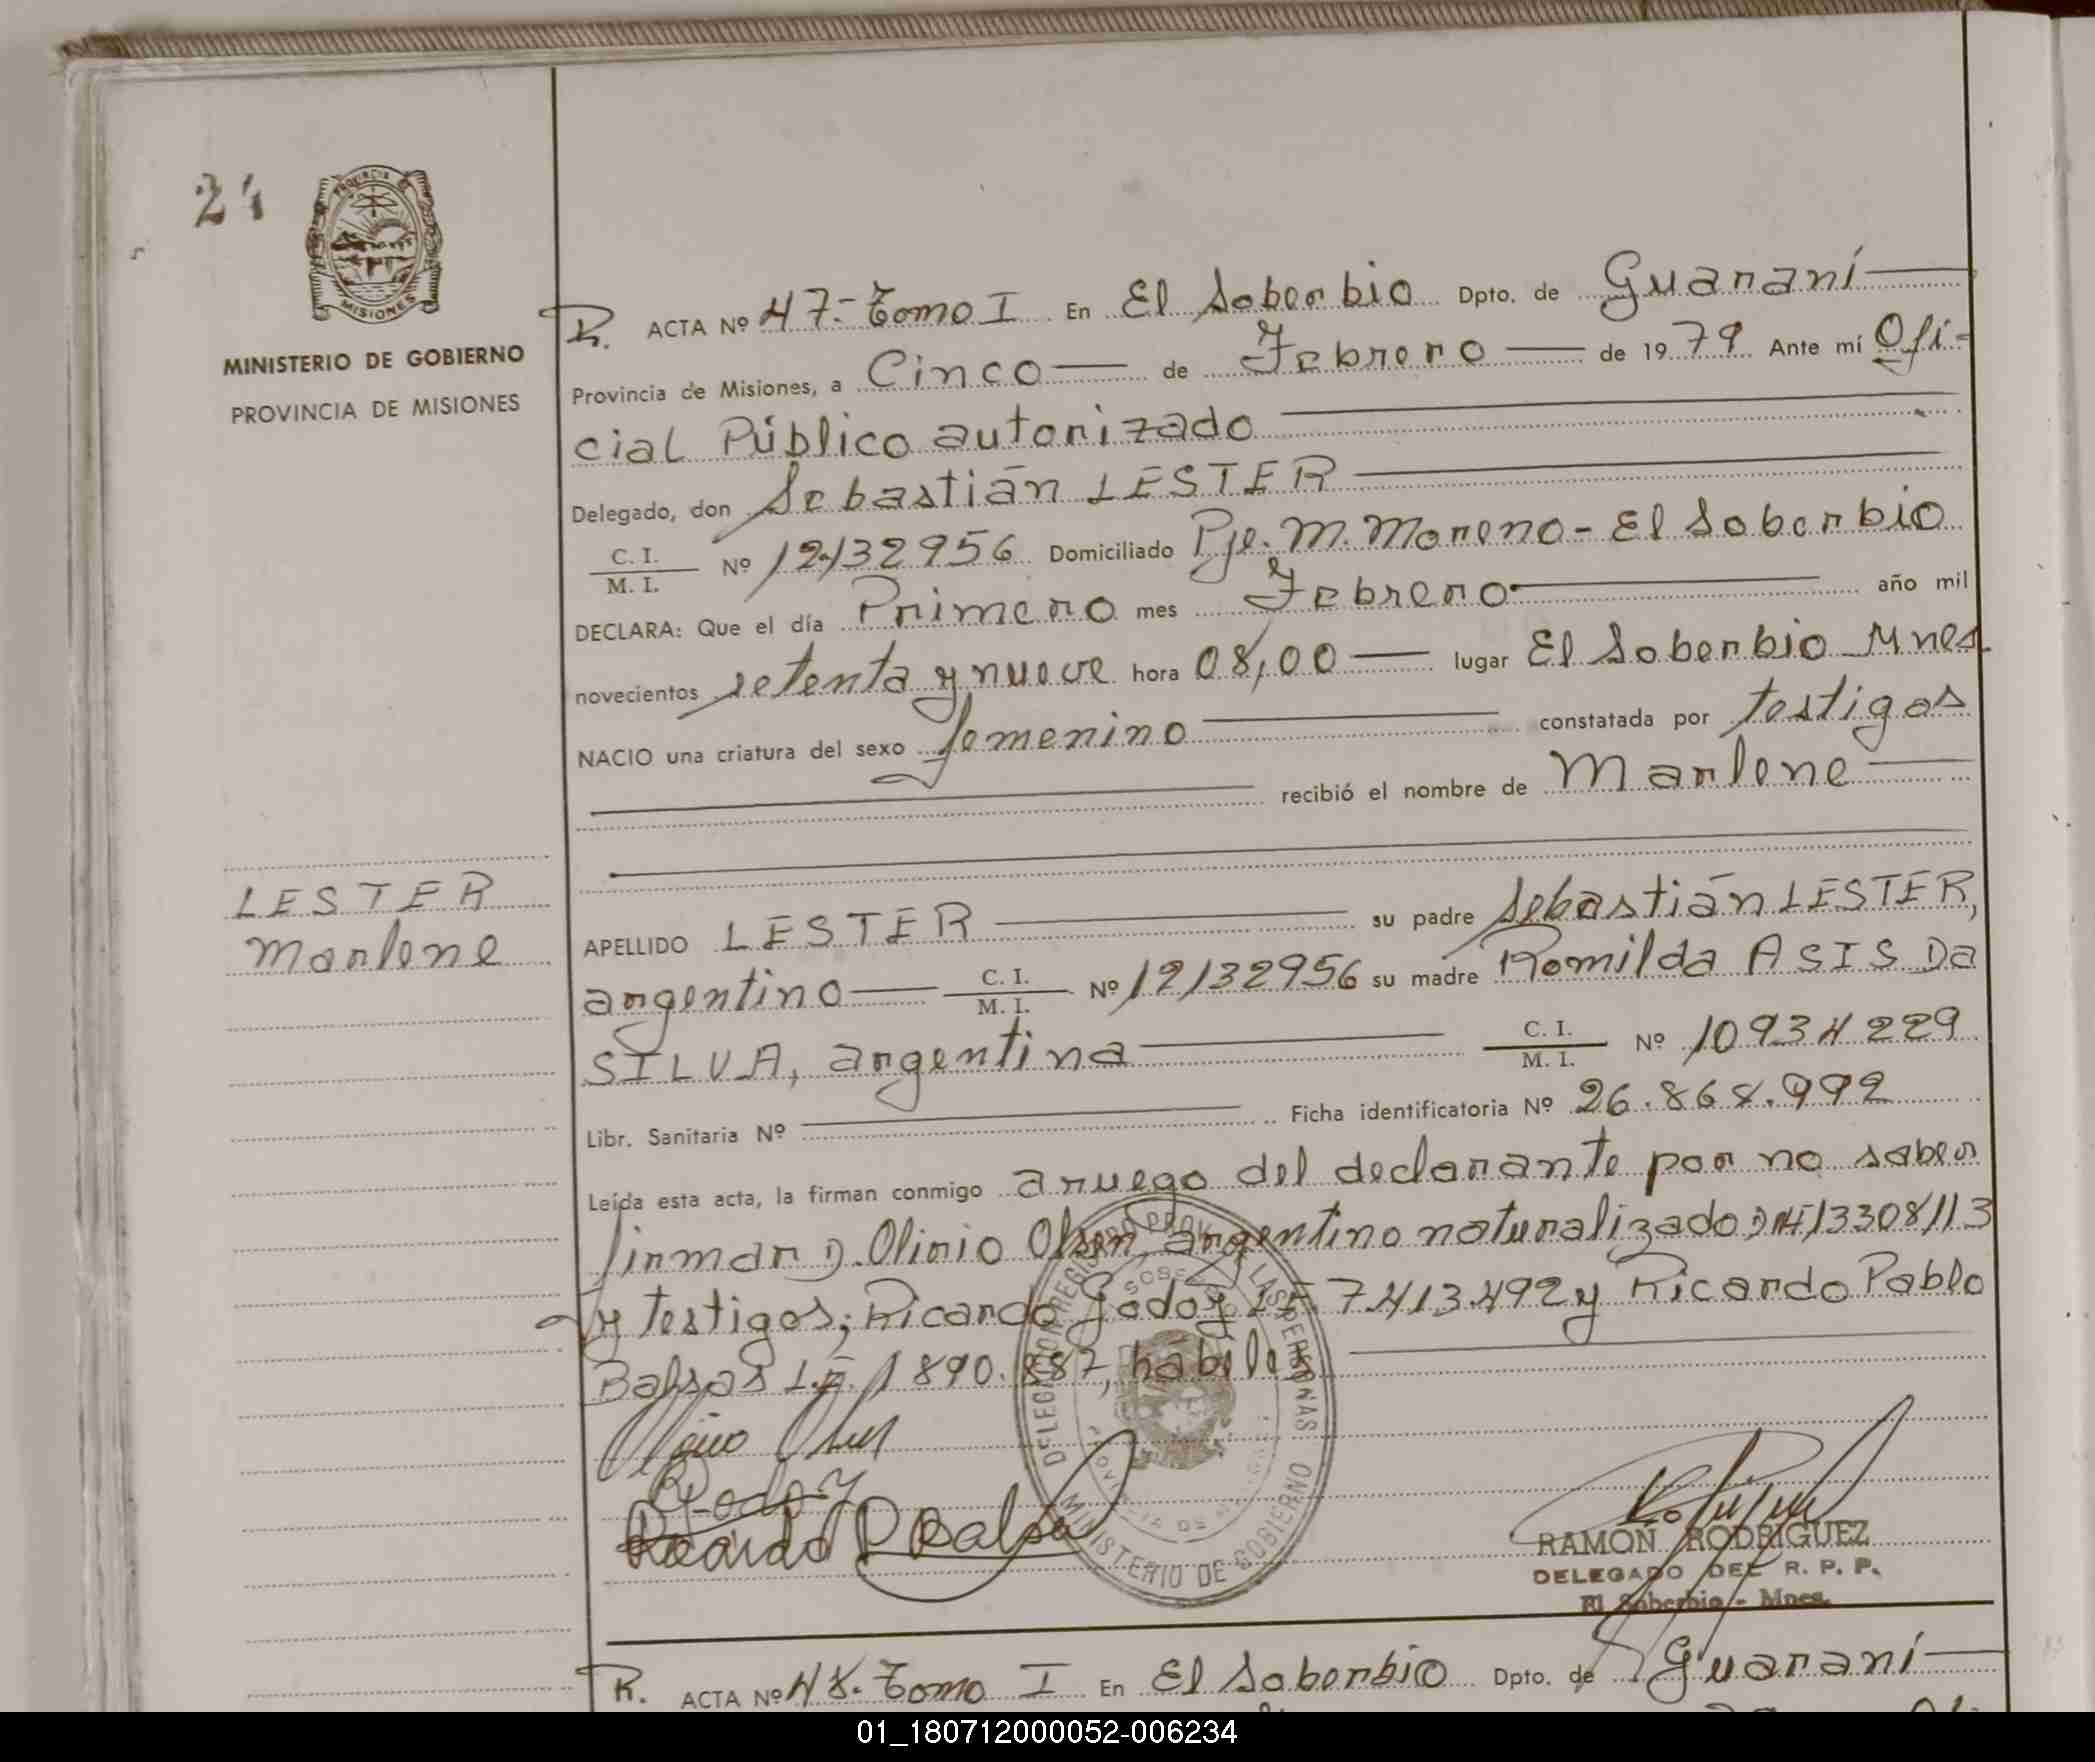 24
PROVINCIA DE
MISIONES
MINISTERIO DE GOBIERNO
PROVINCIA DE MISIONES
R. ACTA Nº 47.- Tomo I En El Soberbio Dpto. de Guaraní
Provincia de Misiones, a Cinco de Febrero de 1979 Ante mí Ofi-
cial Público autorizado
Delegado, don Sebastián LESTER
C. I. / M. I. Nº 12132956 Domiciliado Pje. M. Moreno - El Soberbio
DECLARA: Que el día Primero mes Febrero año mil
novecientos setenta y nueve hora 08,00 lugar El Soberbio Mnes
NACIO una criatura del sexo femenino constatada por testigos
recibió el nombre de Marlene
LESTER
Marlene
APELLIDO LESTER su padre Sebastián LESTER,
argentino C. I. / M. I. Nº 12132956 su madre Romilda ASIS Da
SILVA, argentina C. I. / M. I. Nº 10934229
Libr. Sanitaria Nº Ficha identificatoria Nº 26.868.992
Leída esta acta, la firman conmigo a ruego del declarante por no saber
firmar D. Olirio Olsen, argentino naturalizado DNI 13308113
y testigos; Ricardo Godoy L.E. 7.413.492 y Ricardo Pablo
Balsas L.E. 1890.887, habiles
R Godoy
Ricardo P Balsa
DELEGACION REGISTRO PROV. LAS PERSONAS
MINISTERIO DE GOBIERNO
RAMON RODRIGUEZ
DELEGADO DEL R. P. P.
El Soberbio - Mnes.
R. ACTA Nº 48.- Tomo I En El Soberbio Dpto. de Guaraní
01_180712000052-006234